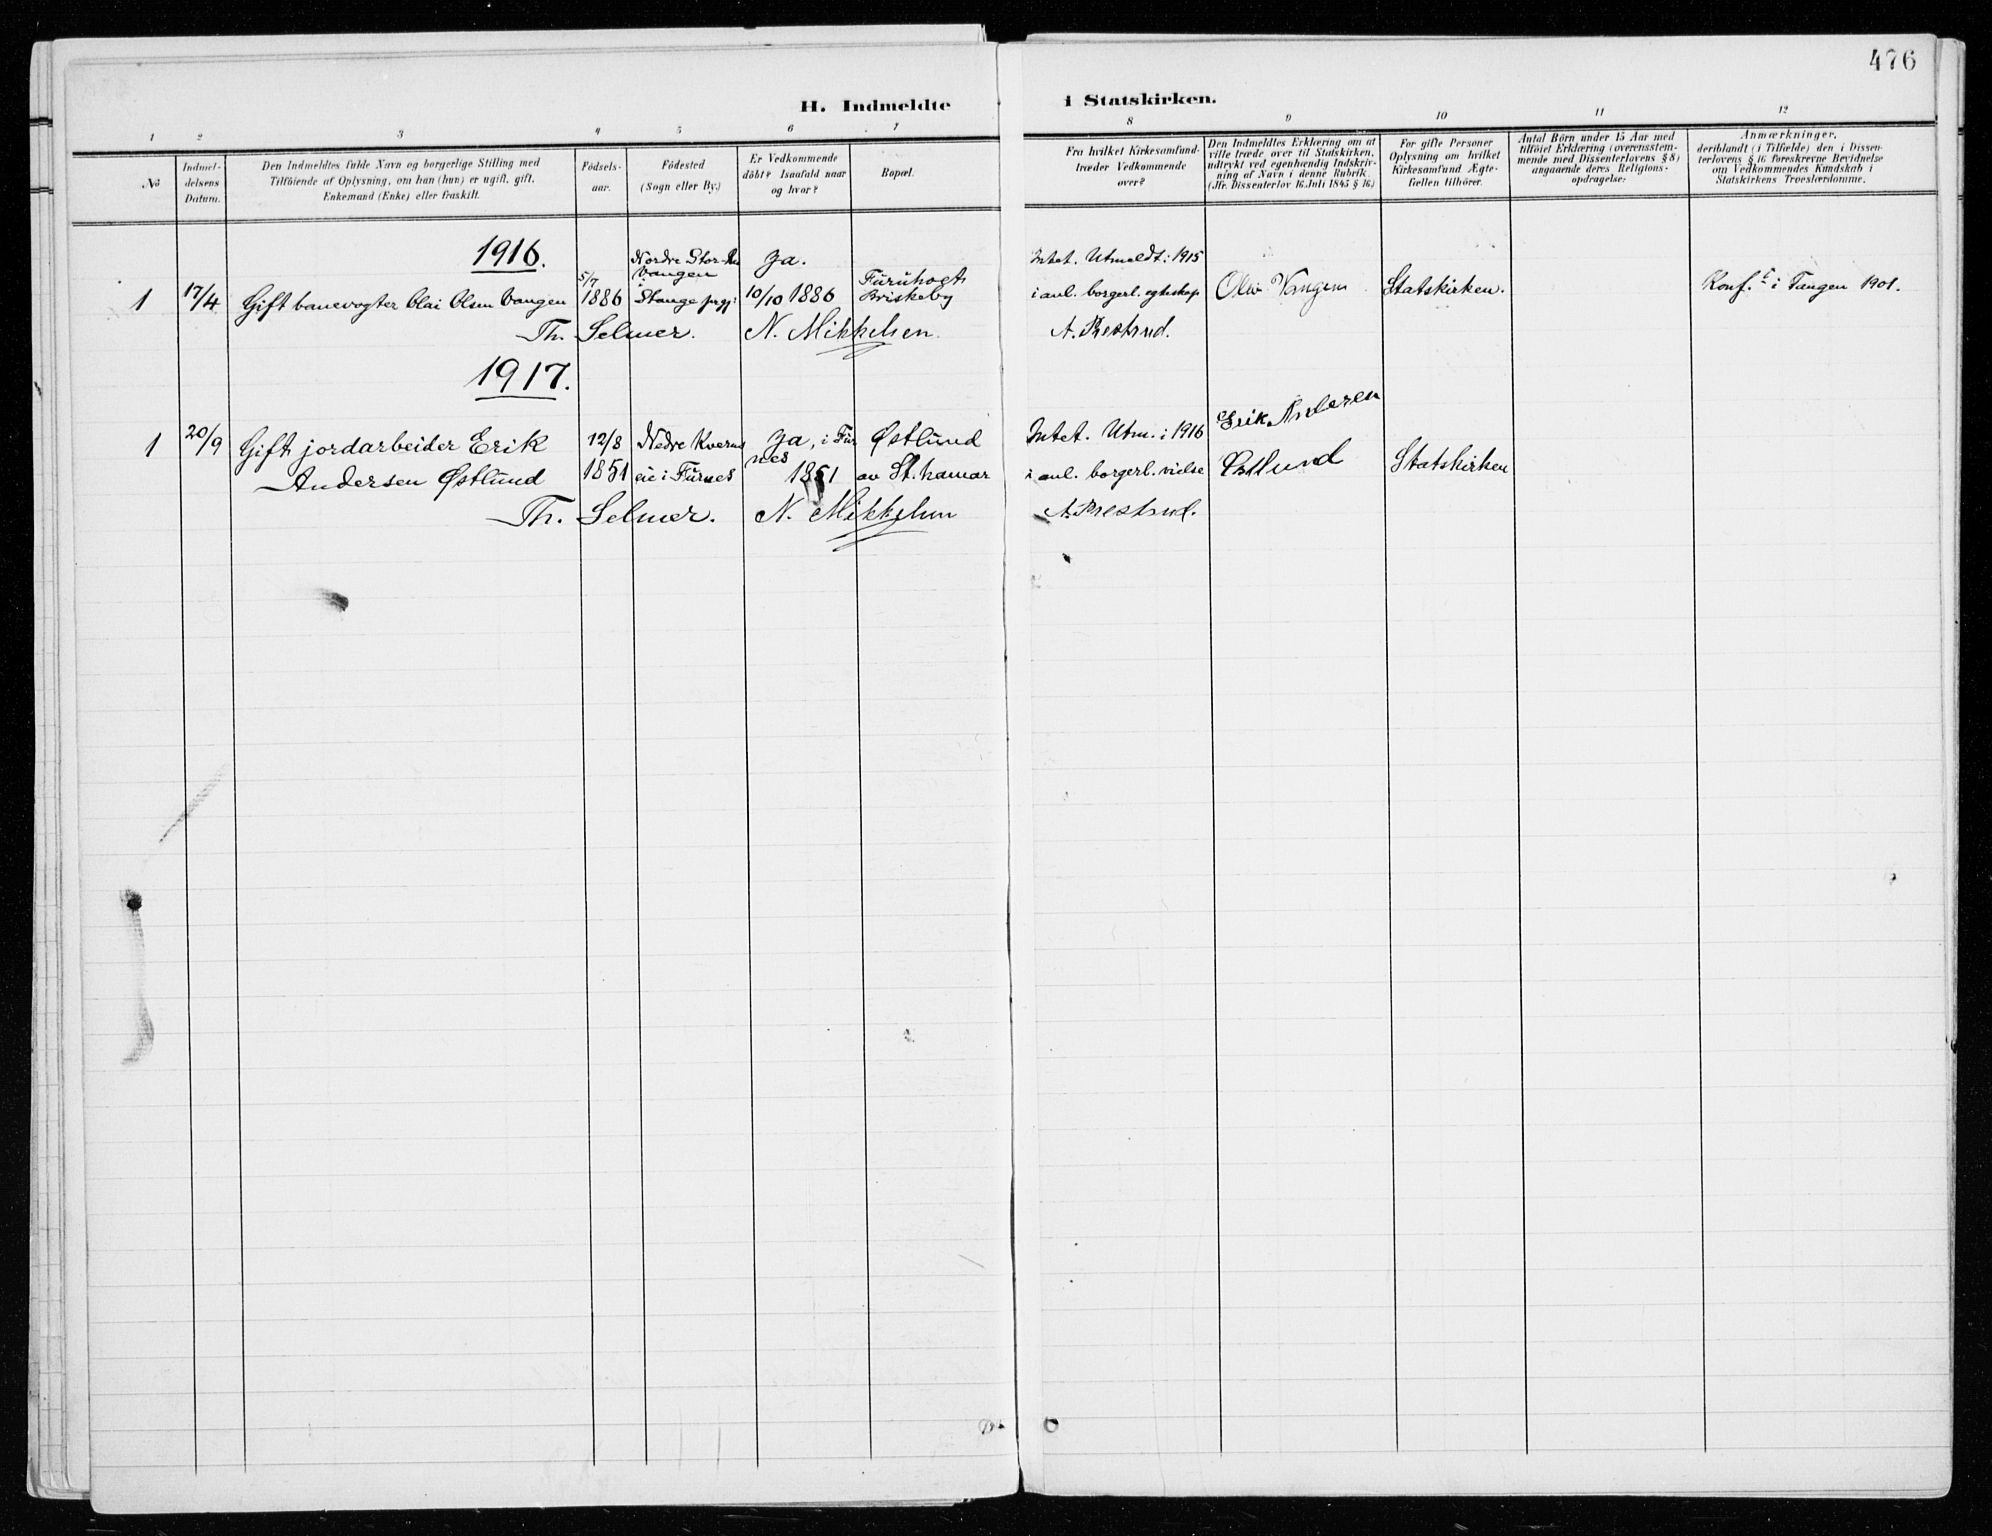 476
H. Indmeldte i Statskirken.
1 2 3 4 5 6 7 8 9 10 11 12
No
Indmel-
delsens
Datum.
Den Indmeldtes fulde Navn og borgerlige Stilling med
Tilføiende af Oplysning, om han (hun) er ugift, gift,
Enkemand (Enke) eller fraskilt.
Fødsels-
aar.
Fødested
(Sogn eller By.)
Er Vedkommende
døbt? Isaafald naar
og hvor?
Bopæl.
Fra hvilket Kirkesamfund
træder Vedkommende
over?
Den Indmeldtes Erklæring om at
ville træde over til Statskirken,
udtrykt ved egenhendig Indskriv-
ning af Navn i denne Rubrik.
(Jfr. Dissenterlov 16. Juli 1845 § 16)
For gifte Personer
Oplysning om hvilket
Kirkesamfund Ægte-
fællen tilhører.
Antal Børn under 15 Aar med
tilføiet Erklæring (overensstem-
mende med Dissenterlovens § 8)
angaaende deres Religions-
opdragelse:
Anmærkninger,
deriblandt (i Tilfælde) den i Dissen-
terlovens § 16 foreskrevne Bevidnelse
om Vedkommendes Kundskab i
Statskirkens Troeslærdomme.
1916.
1
17/4
Gift banevogter Olai Olsen Vangen
5/7
1886
Nordre Stor-
vangen
i
Stange prgj:
Ja.
10/10 1886
Furuhogt
Briskeby
Intet. Utmeldt: 1915
i anl. borgerl. egteskap
Olai Vangen
Statskirken.
Konf. i Tangen 1901.
Th. Selmer. N. Mikkelsen. A. Prestrud.
1917.
1
20/9
Gift jordarbeider Erik
Andersen Østlund
12/8
1851
Nedre Kverns
eie i Furnes
Ja, i Fur
nes
1851
Østlund
av St. hamar
Intet. Utm. i 1916
i anl. borgerl. vielse
Erik Andersen
Østlund
Statskirken
Th. Selmer. N. Mikkelsen A. Prestrud.